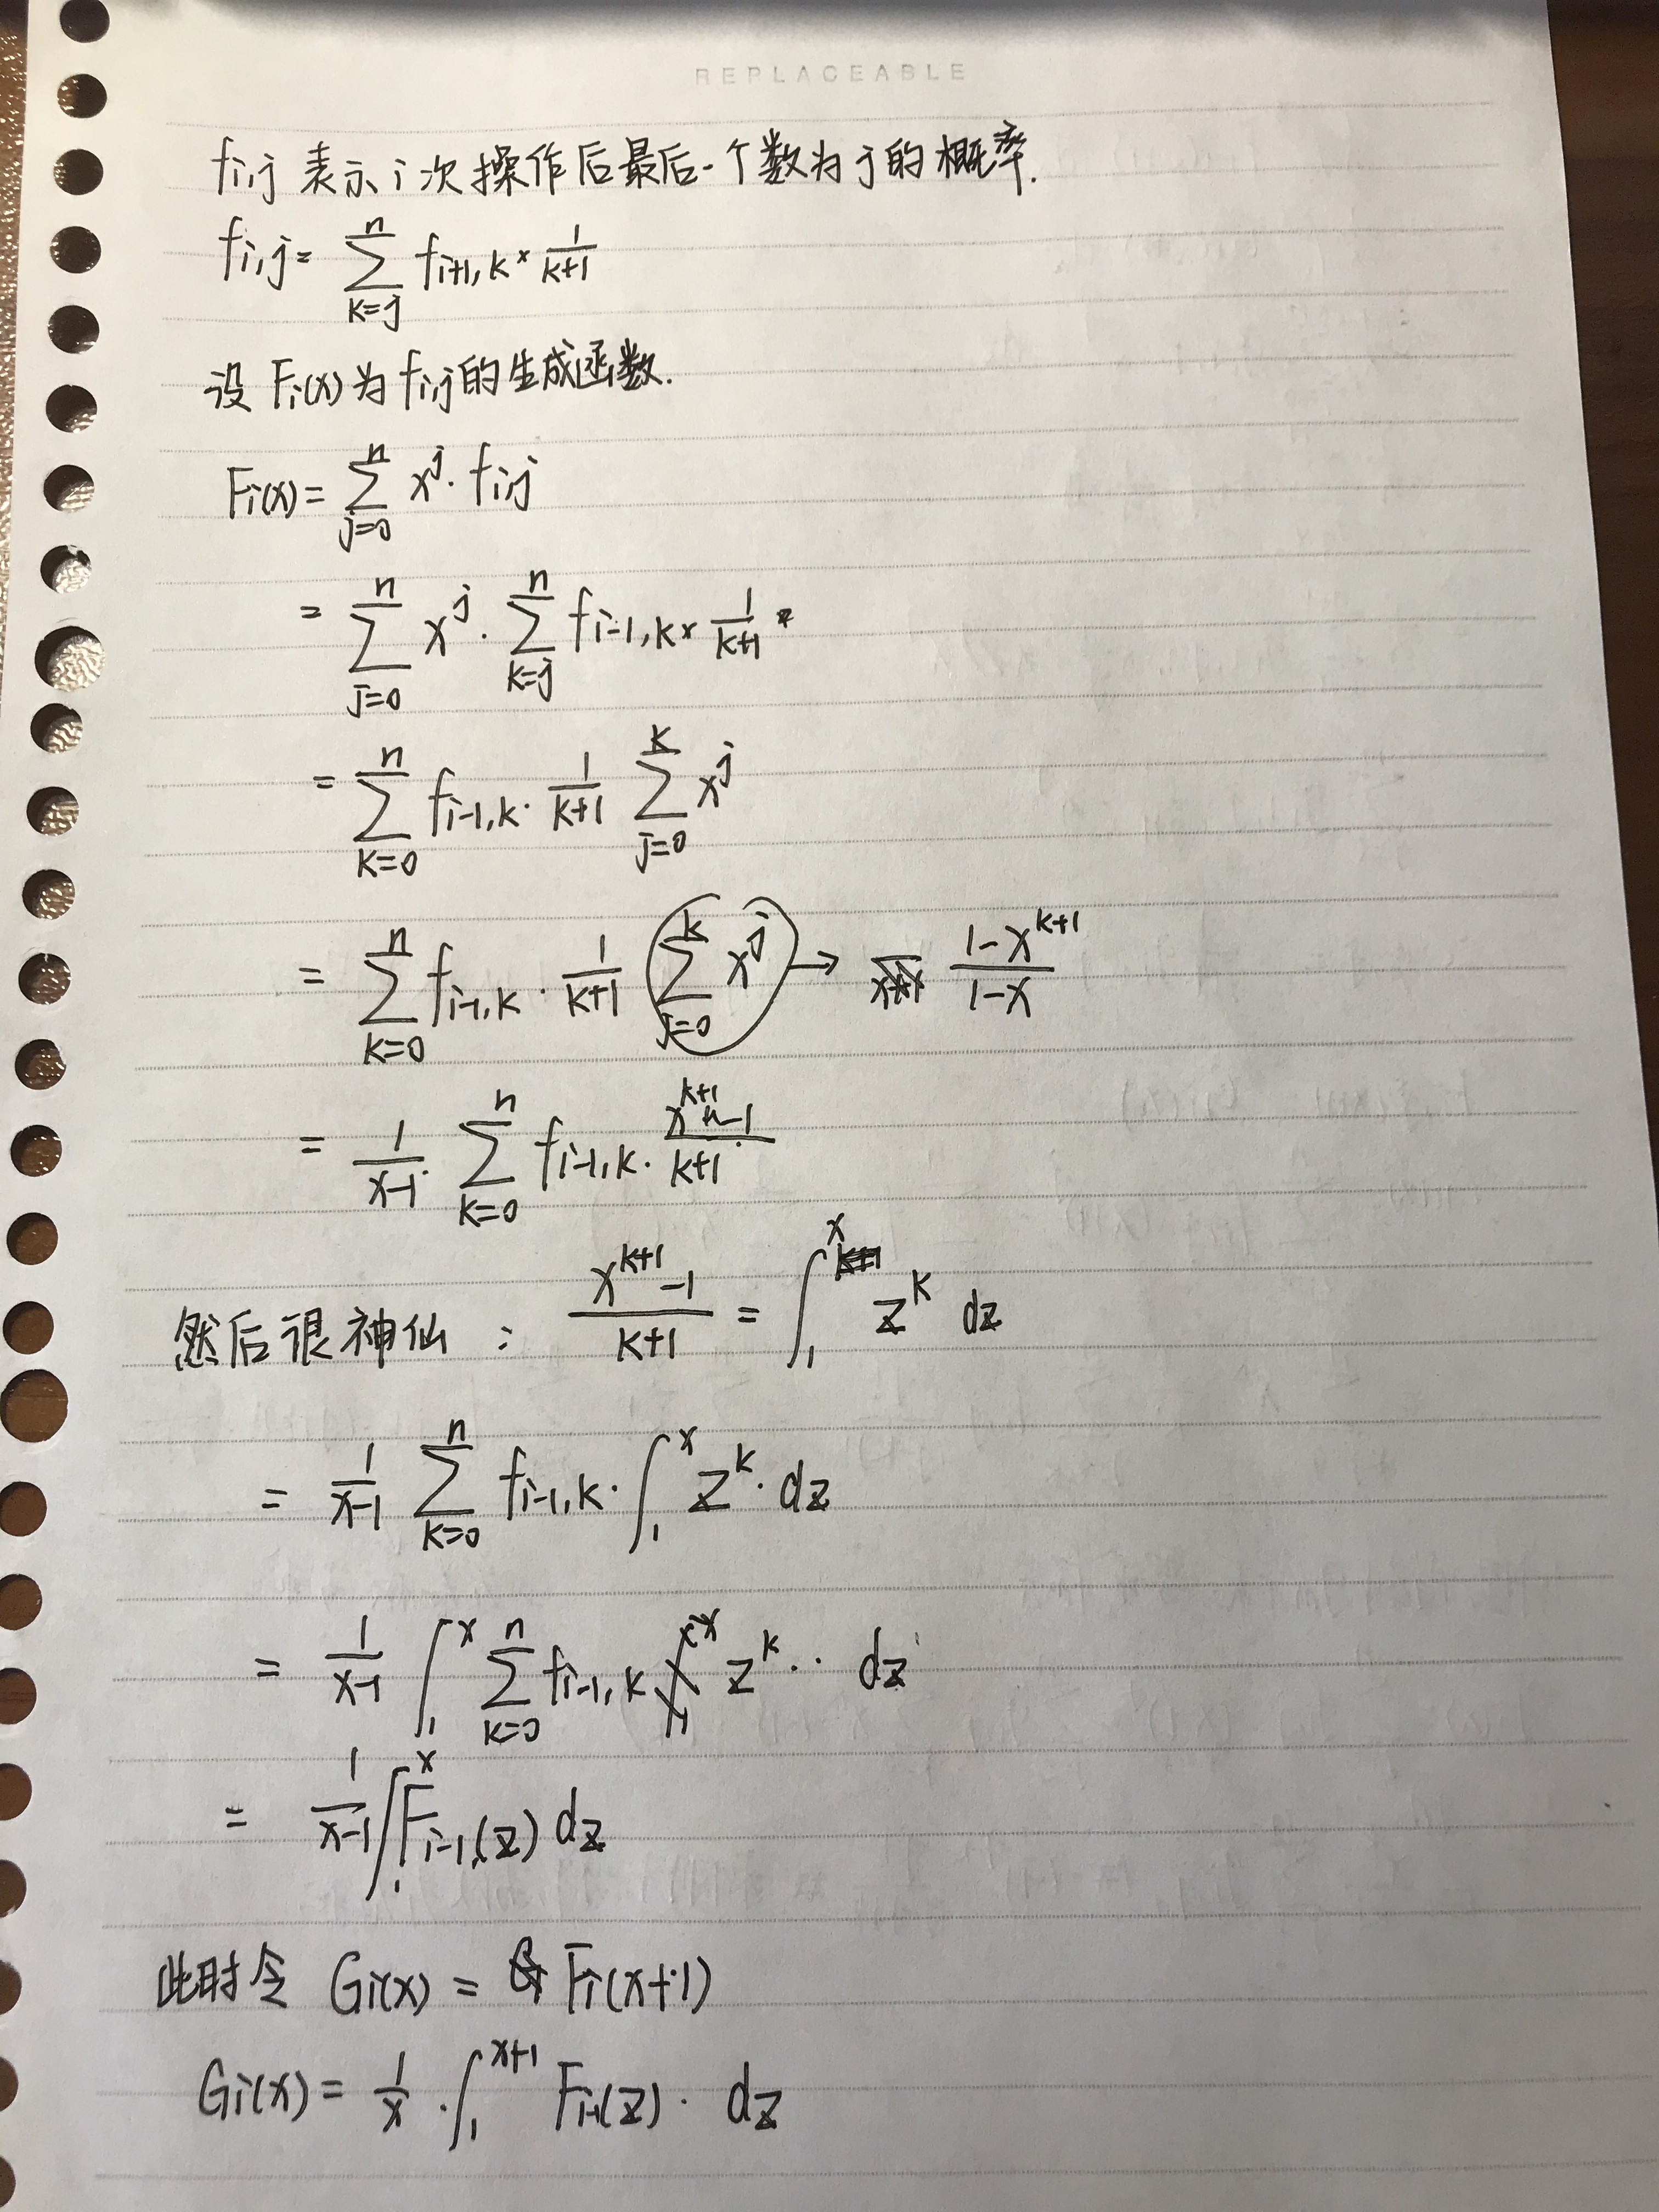 REPLACEABLE
fi,j 表示 i 次操作后最后一个数为 j 的概率.
fi,j = ∑_{k=j}^{n} f_{i+1,k} × 1/(k+1)
设 Fi(x) 为 fi,j 的生成函数.
Fi(x) = ∑_{j=0}^{n} x^j · fi,j
= ∑_{j=0}^{n} x^j · ∑_{k=j}^{n} f_{i-1,k} × 1/(k+1)
= ∑_{k=0}^{n} f_{i-1,k} · 1/(k+1) ∑_{j=0}^{k} x^j
= ∑_{k=0}^{n} f_{i-1,k} · 1/(k+1) (∑_{j=0}^{k} x^j) → (1-x^{k+1})/(1-x)
= 1/(x-1) · ∑_{k=0}^{n} f_{i-1,k} · (x^{k+1}-1)/(k+1)
然后很神仙 : (x^{k+1}-1)/(k+1) = ∫_1^x z^k dz
= 1/(x-1) ∑_{k=0}^{n} f_{i-1,k} · ∫_1^x z^k · dz
= 1/(x-1) ∫_1^x ∑_{k=0}^{n} f_{i-1,k} z^k ·· dz
= 1/(x-1) ∫_1^x F_{i-1}(z) dz
此时令 Gi(x) = Fi(x+1)
Gi(x) = 1/x · ∫_1^{x+1} F_{i-1}(z) · dz